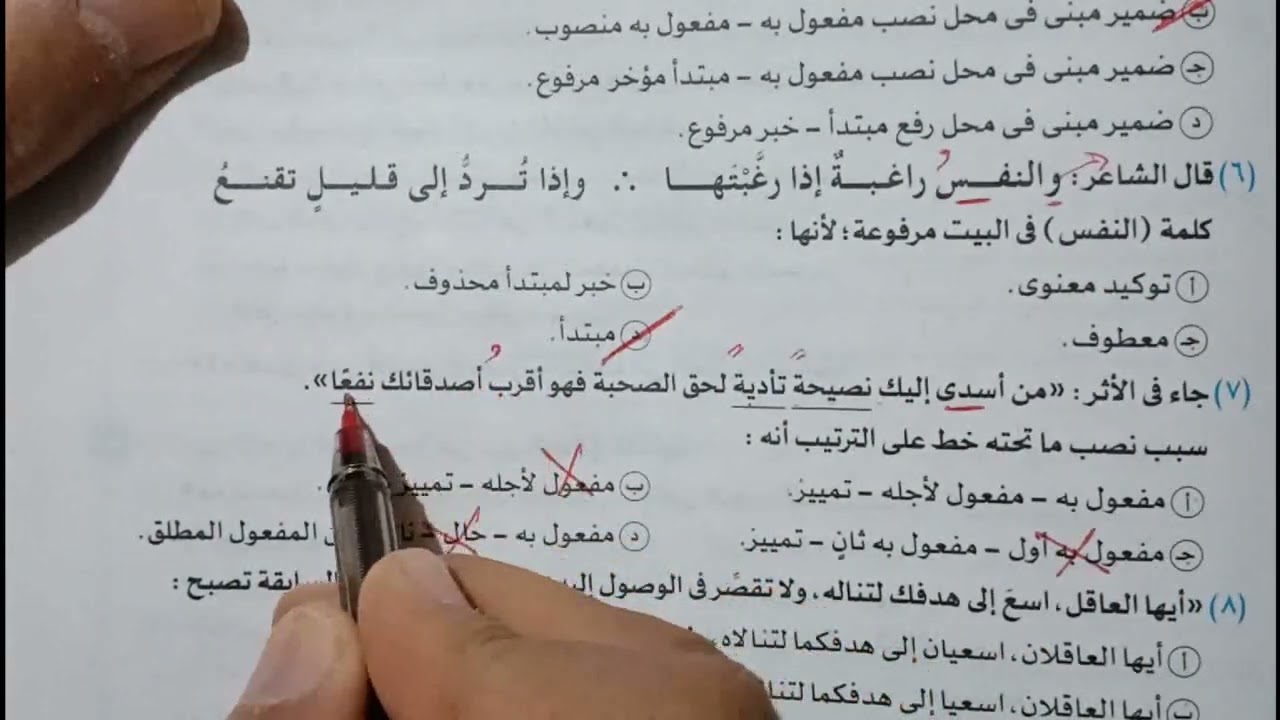 ب ضمير مبنى فى محل نصب مفعول به - مفعول به منصوب.
ج ضمير مبنى فى محل نصب مفعول به - مبتدأ مؤخر مرفوع.
د ضمير مبنى فى محل رفع مبتدأ - خبر مرفوع.
(٦) قال الشاعر: والنفس راغبةٌ إذا رغَّبْتَها ∴ وإذا تُردُّ إلى قليلٍ تقنعُ
كلمة (النفس) فى البيت مرفوعة؛ لأنها:
أ توكيد معنوى. ب خبر لمبتدأ محذوف.
ج معطوف. د مبتدأ.
(٧) جاء فى الأثر: «من أسدى إليك نصيحة تأدية لحق الصحبة فهو أقرب أصدقائك نفعًا».
سبب نصب ما تحته خط على الترتيب أنه:
أ مفعول به - مفعول لأجله - تمييز. ب مفعول لأجله - تمييز
ج مفعول به أول - مفعول به ثانٍ - تمييز. د مفعول به - حال - المفعول المطلق.
(٨) «أيها العاقل، اسعَ إلى هدفك لتناله، ولا تقصِّر فى الوصول السابقة تصبح:
أ أيها العاقلان، اسعيان إلى هدفكما لتنالاه،
ب أيها العاقلان، اسعيا إلى هدفكما